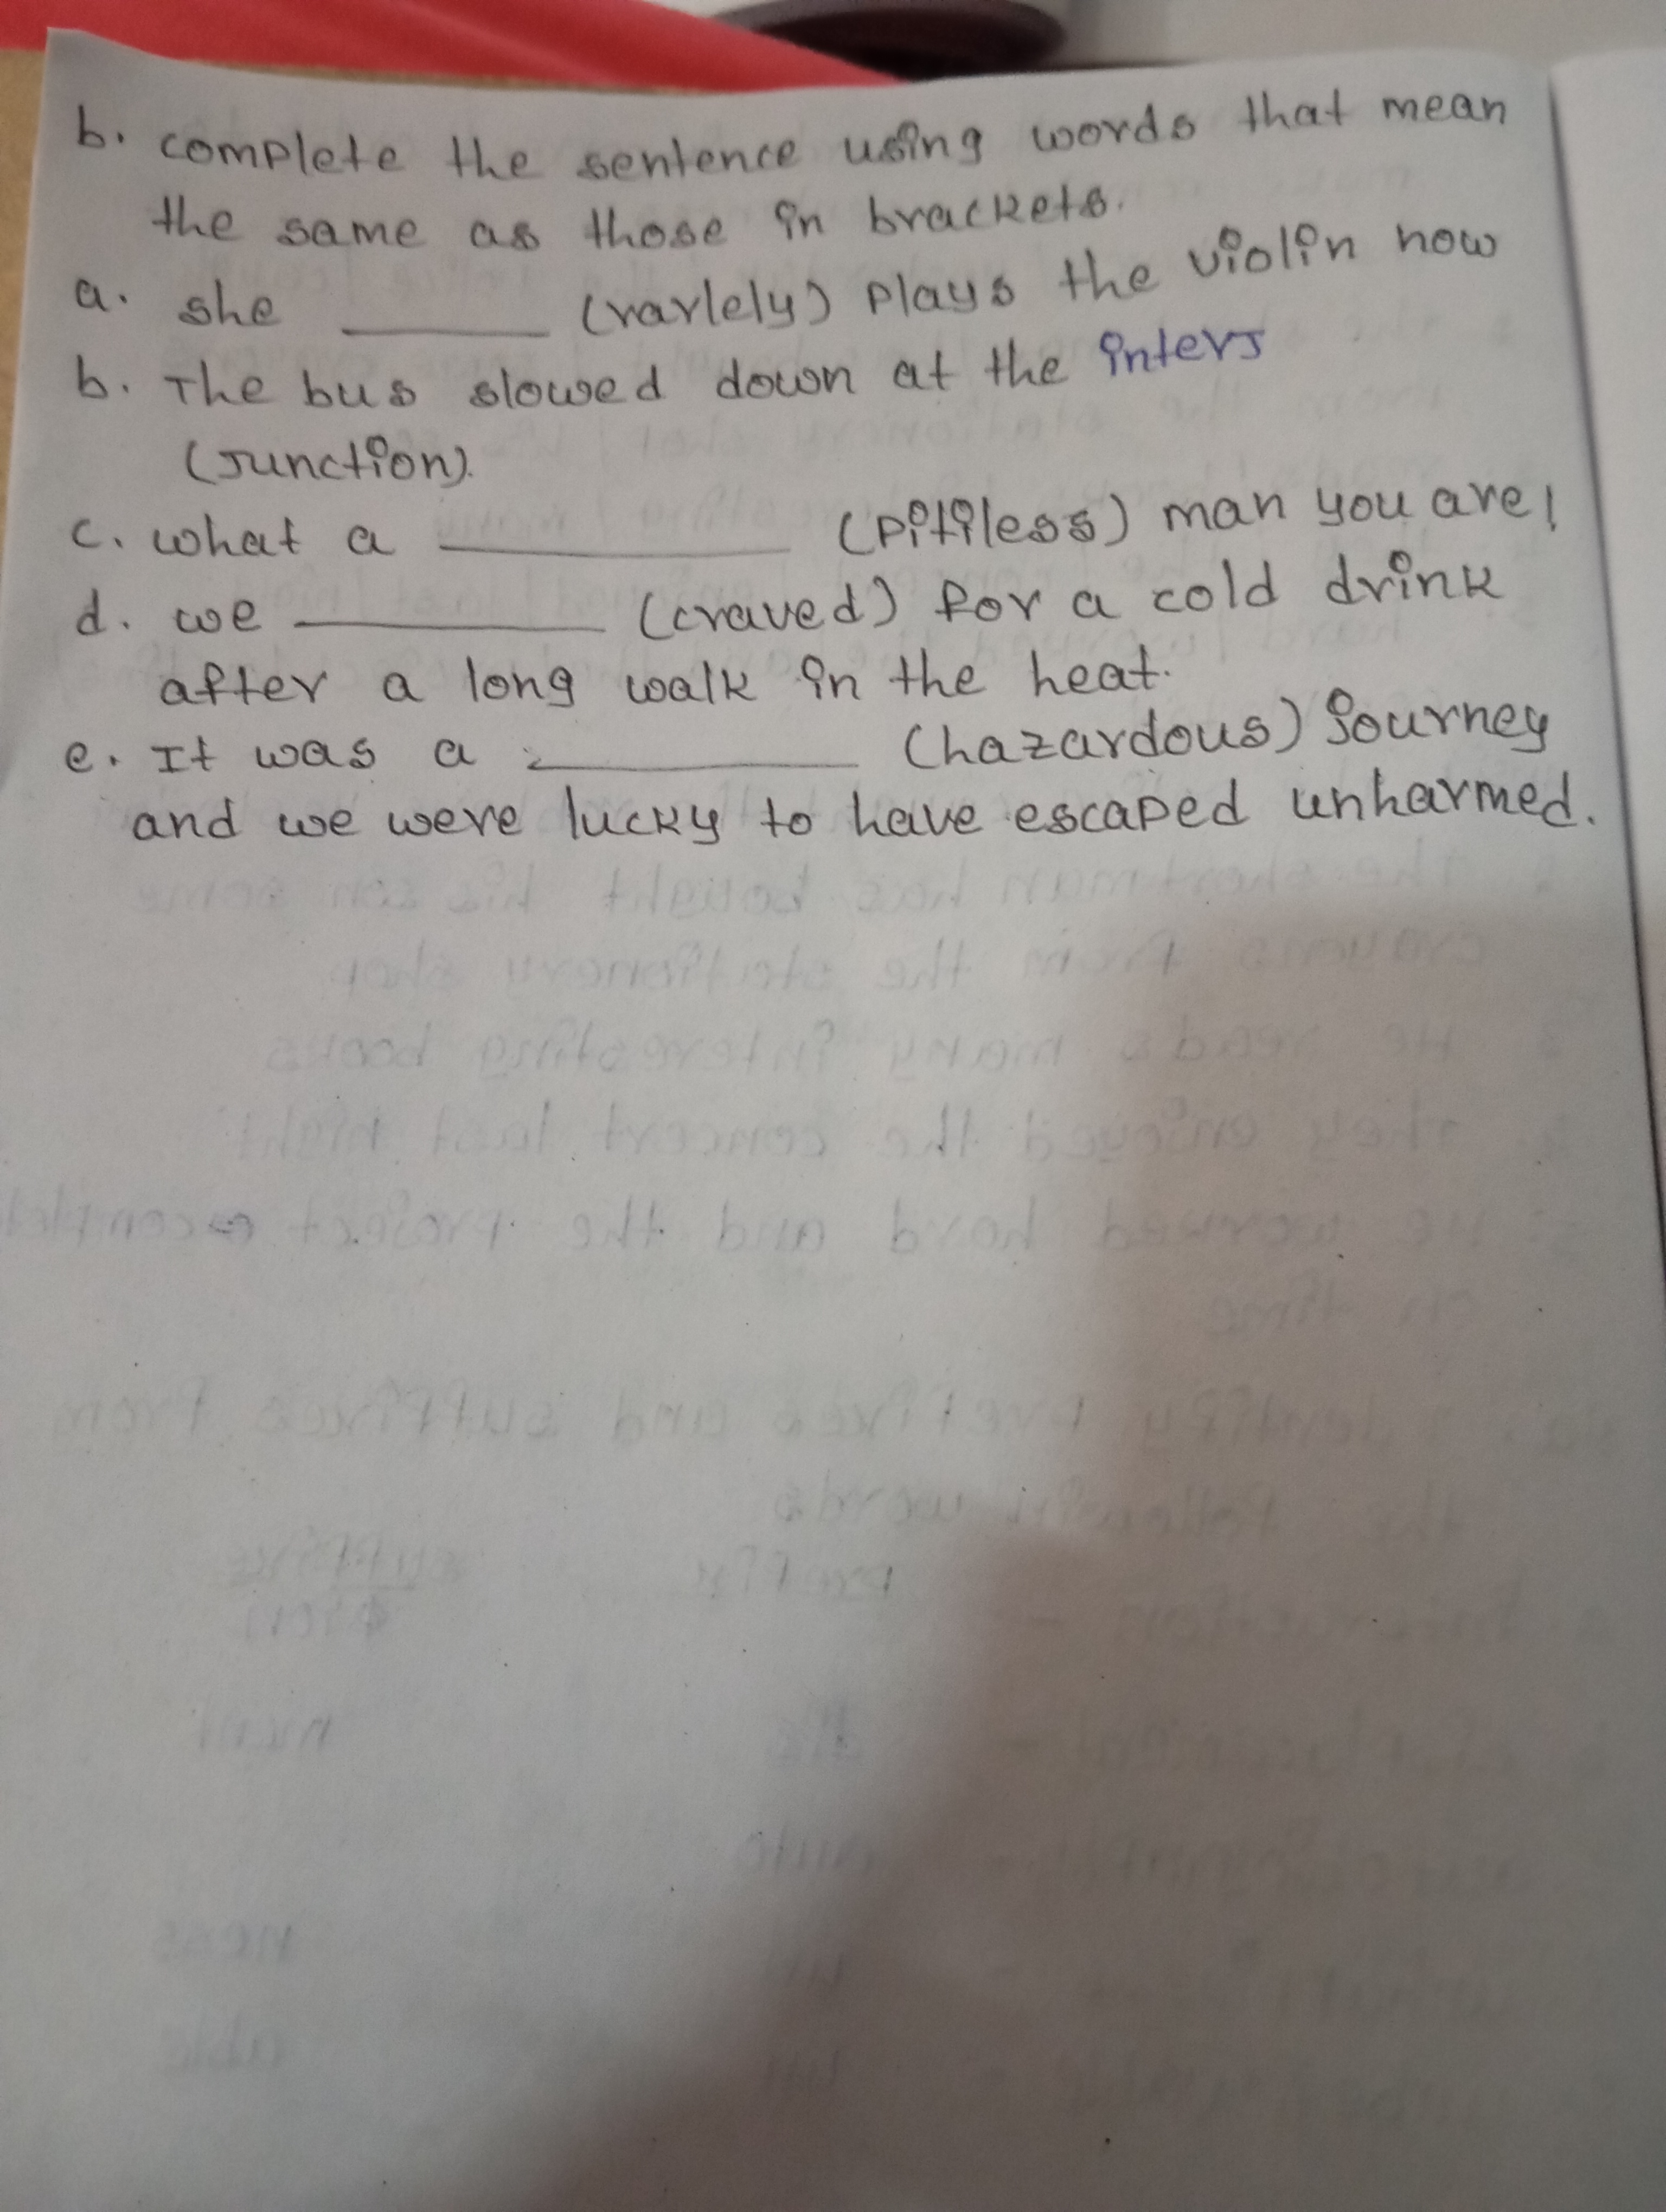 b. complete the sentence using words that mean
the same as those in brackets.
a. she ______ (rarlely) plays the violin now
b. The bus slowed down at the inters
(Junction).
c. what a ______ (pitiless) man you are!
d. we ______ (craved) for a cold drink
after a long walk in the heat.
e. It was a ______ (hazardous) journey
and we were lucky to have escaped unharmed.